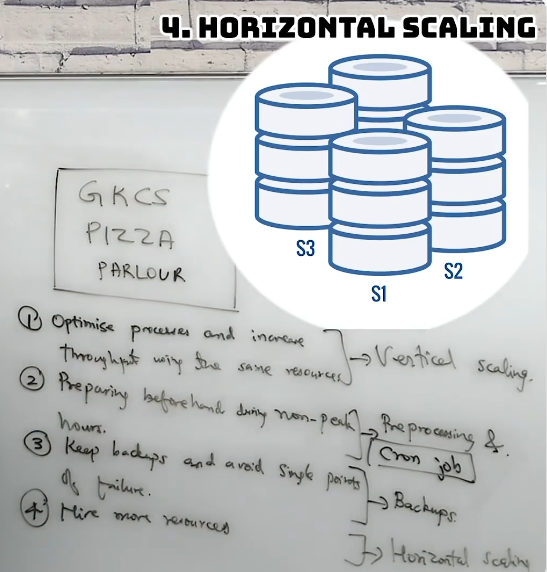 4. HORIZONTAL SCALING
S3
S2
S1
GKCS
PIZZA
PARLOUR
① Optimise processes and increase
throughput using the same resources
→ Vertical scaling.
② Preparing beforehand during non-peak
hours.
→ Preprocessing &
Cron job
③ Keep backups and avoid single points
of failure.
→ Backups
④ Hire more resources
→ Horizontal scaling